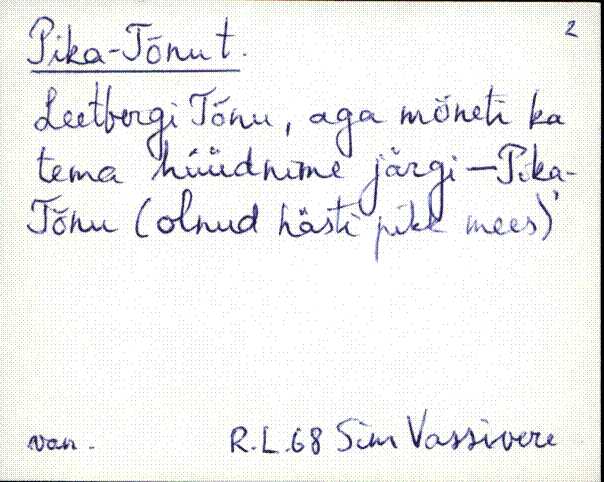 2
Pika-Tõnu t.
Leetbergi Tõnu, aga mõneti ka
tema hüüdnime järgi - Pika-
Tõnu (olnud hästi pikk mees)
van. R.L.68 Sim Vassivere